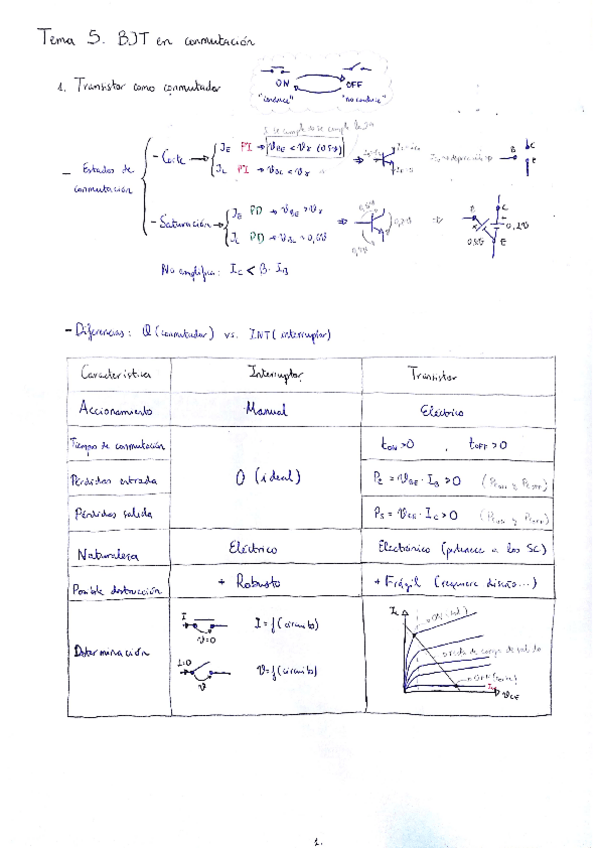 Tema 5. BJT en conmutación
1. Transistor como conmutador
ON OFF
"conduce" "no conduce"
- Estados de conmutación
- Corte → JE PI → VBE < Vγ (0.5V)
JC PI → VBC < Vγ
- Saturación → JE PD → VBE > Vγ
JC PD →
0,2V
B C E
C 0,2V
E
No amplifica: IC < β · IB
- Diferencias: Q (conmutador) vs. INT (interruptor)
Característica Interruptor Transistor
Accionamiento Manual Eléctrico
Tiempos de conmutación tON > 0 , tOFF > 0
Pérdidas entrada 0 (ideal) PE = VBE · IB > 0
Pérdidas salida PS = VCE · IC > 0
Naturaleza Eléctrico Electrónico (pertenece a los SC)
Posible destrucción + Robusto + Frágil (requiere diseño...)
Determinación
I V=0 I = f(circuito)
I=0 V V = f(circuito)
IC
recta de carga de salida
OFF (corte)
VCE
1.